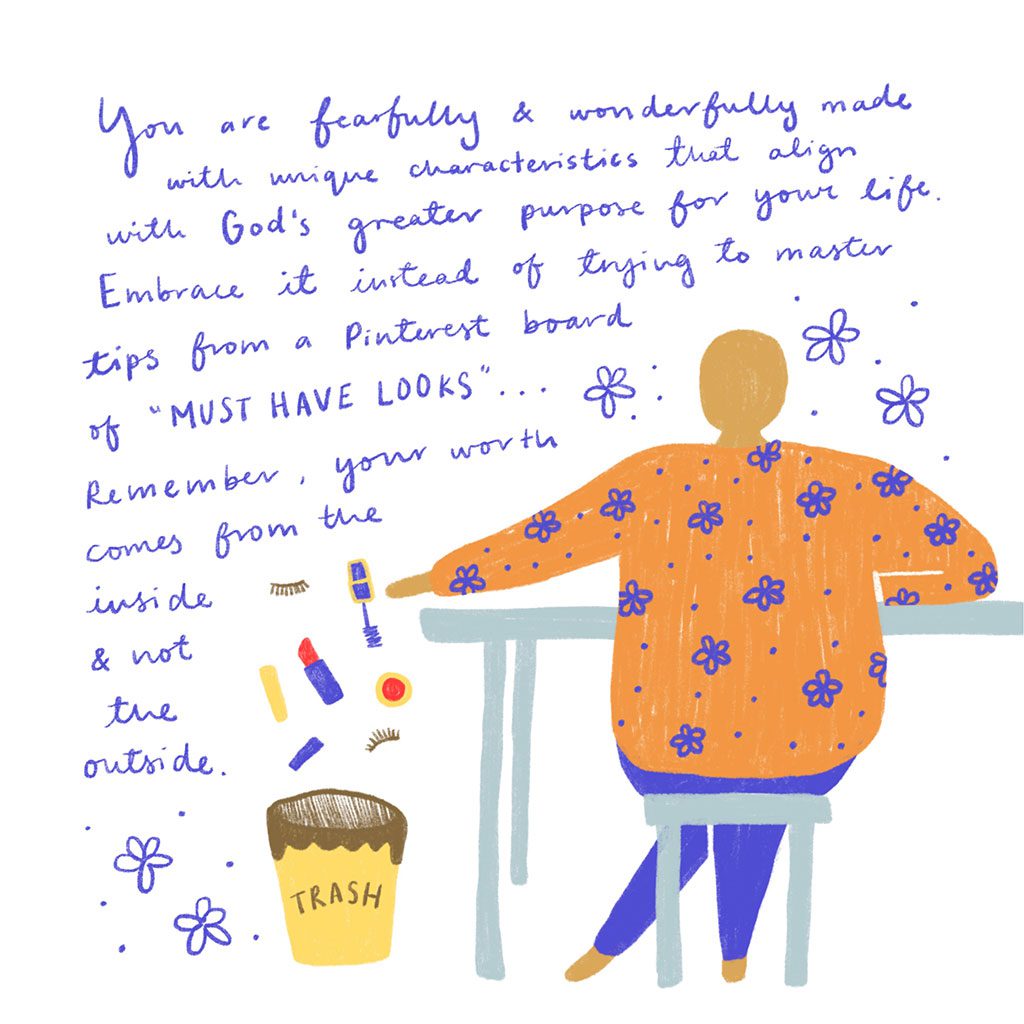 You are fearfully & wonderfully made
with unique characteristics that align
with God's greater purpose for your life.
Embrace it instead of trying to master
tips from a Pinterest board
of "MUST HAVE LOOKS"...
Remember, your worth
comes from the
inside
& not
the
outside.
TRASH